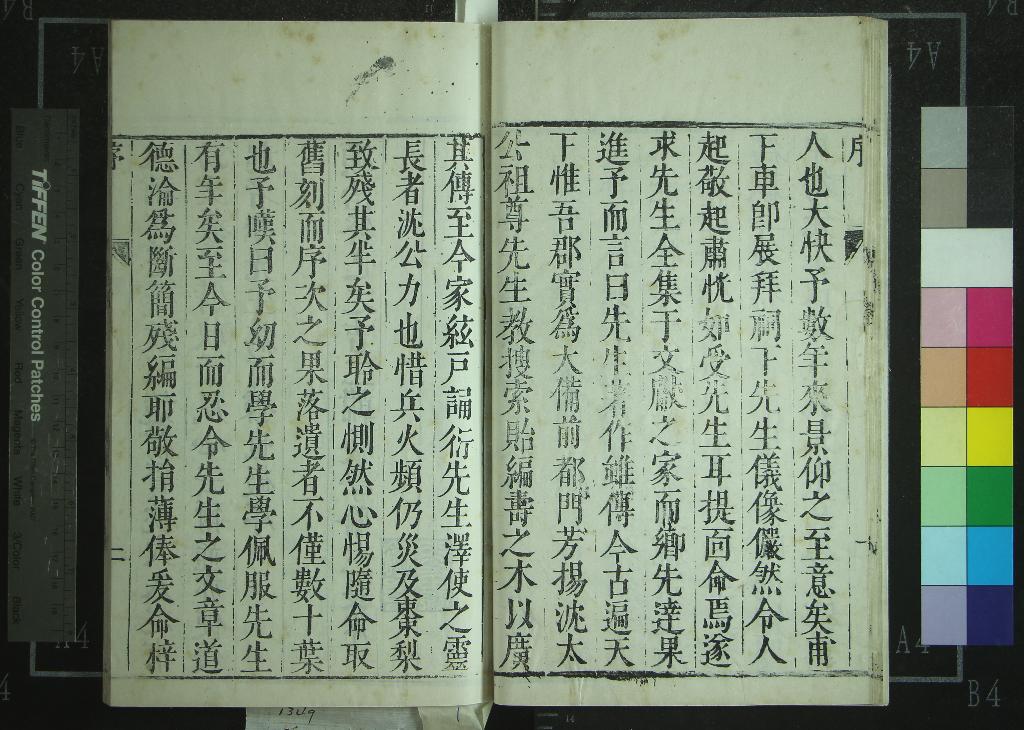 序
人也大快予數年來景仰之至意矣甫
下車卽展拜祠下先生儀像儼然令人
起敬起肅恍如受先生耳提面命焉遂
求先生全集于文獻之家而鄉先達果
進予而言曰先生著作雖傳今古遍天
下惟吾郡實爲大備前都門芳揚沈太
公祖尊先生教搜索貽編壽之木以廣
其傳至今家絃戸誦衍先生澤使之靈
長者沈公力也惜兵火頻仍災及棗梨
致殘其半矣予聆之惻然心惕隨命取
舊刻而序次之果落遺者不僅數十葉
也予嘆曰予幼而學先生學佩服先生
有年矣至今日而忍令先生之文章道
德淪爲斷簡殘編耶敬捐薄俸爰命梓
序
二
TIFFEN Color Control Patches
Blue
Cyan
Green
Yellow
Red
Magenta
White
3/Color
Black
A4
A4
A4
B4